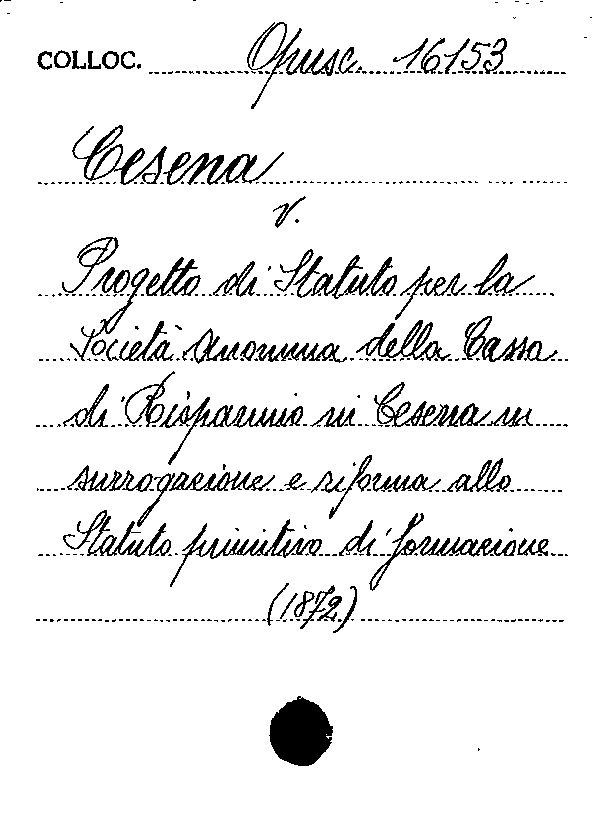 COLLOC. Opusc. 16153
Cesena
v.
Progetto di Statuto per la
Società Anonima della Cassa
di Risparmio in Cesena in
surrogazione e riforma allo
Statuto primitivo di formazione
(1872)